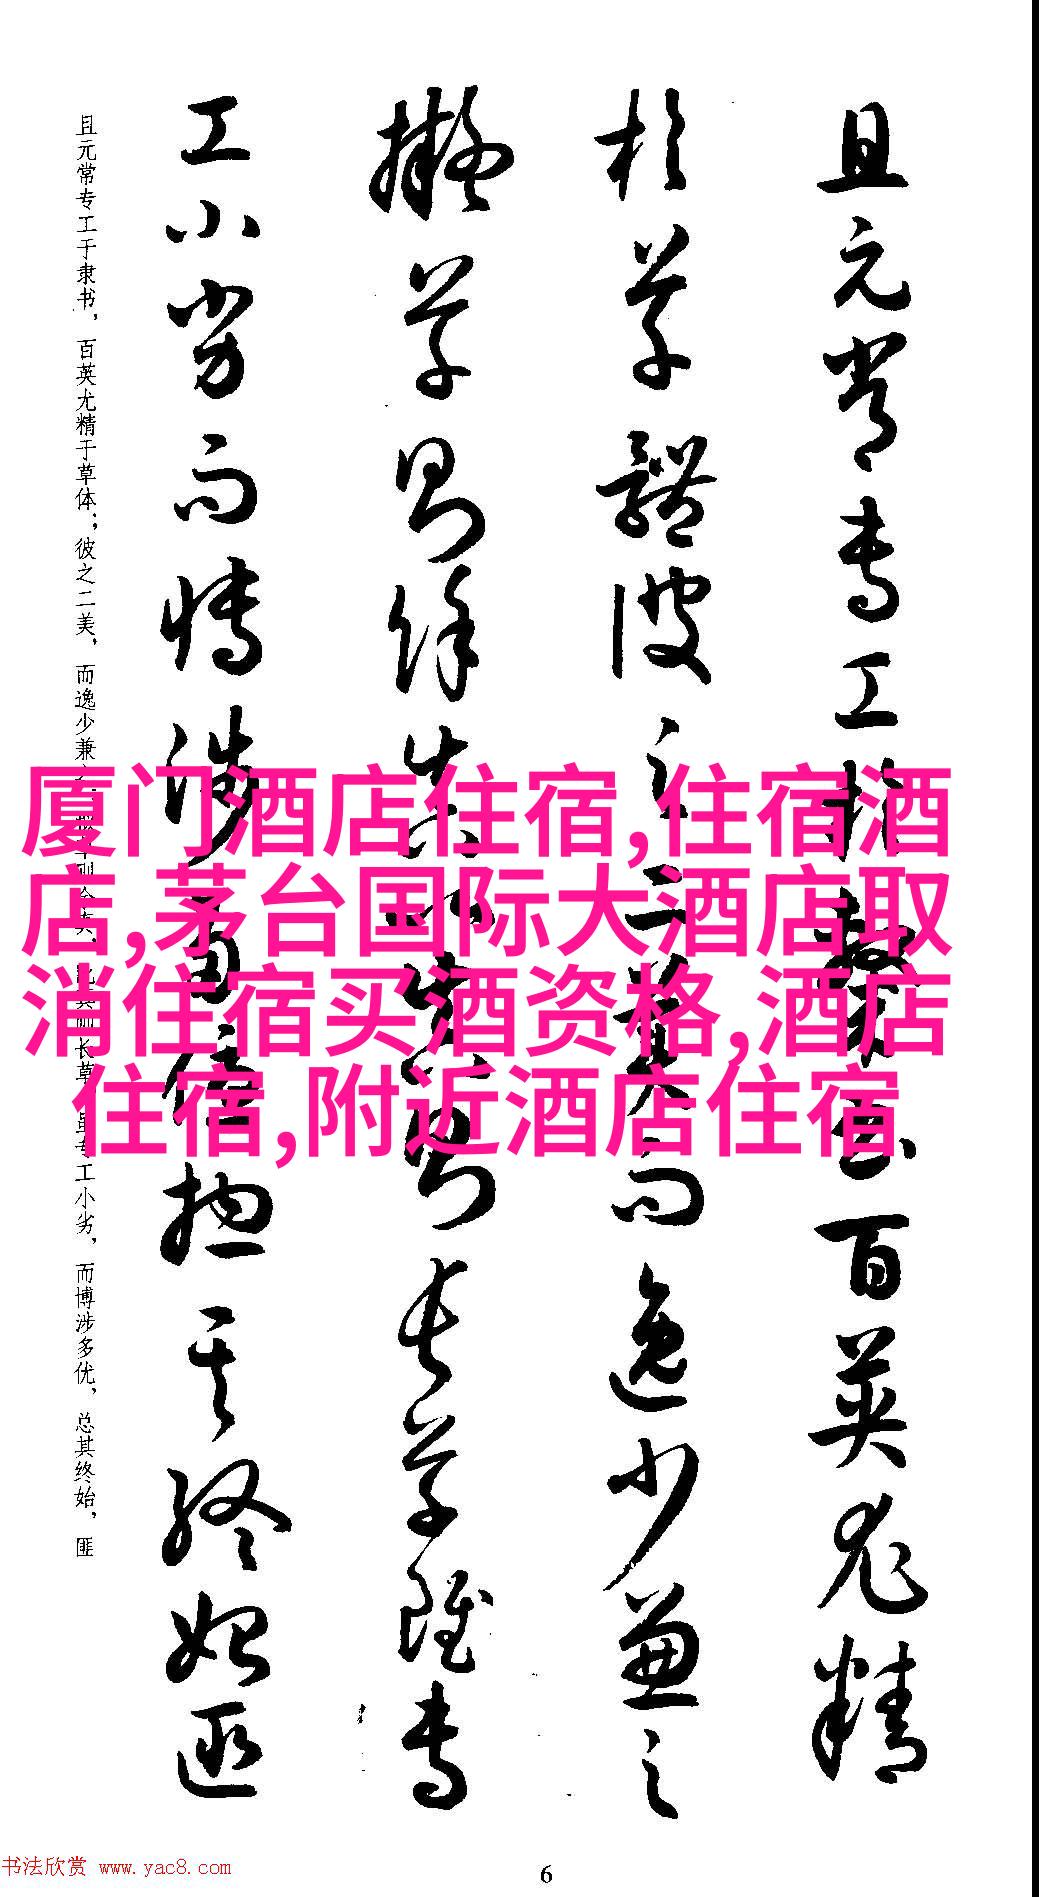 且元常專工於隸書百英尤精
於草體彼之二美而逸少兼之
擬草則餘真比真則長草雖專
工小劣而博涉多優揔其終始匪
且元常专工于隶书，百英尤精于草体；彼之二美，而逸少兼 长草 专工小劣，而博涉多优，总其终始，匪
厦门酒店住宿,住宿酒
店,茅台国际大酒店取
消住宿买酒资格,酒店
住宿,附近酒店住宿
书法欣赏 www.yac8.com
6